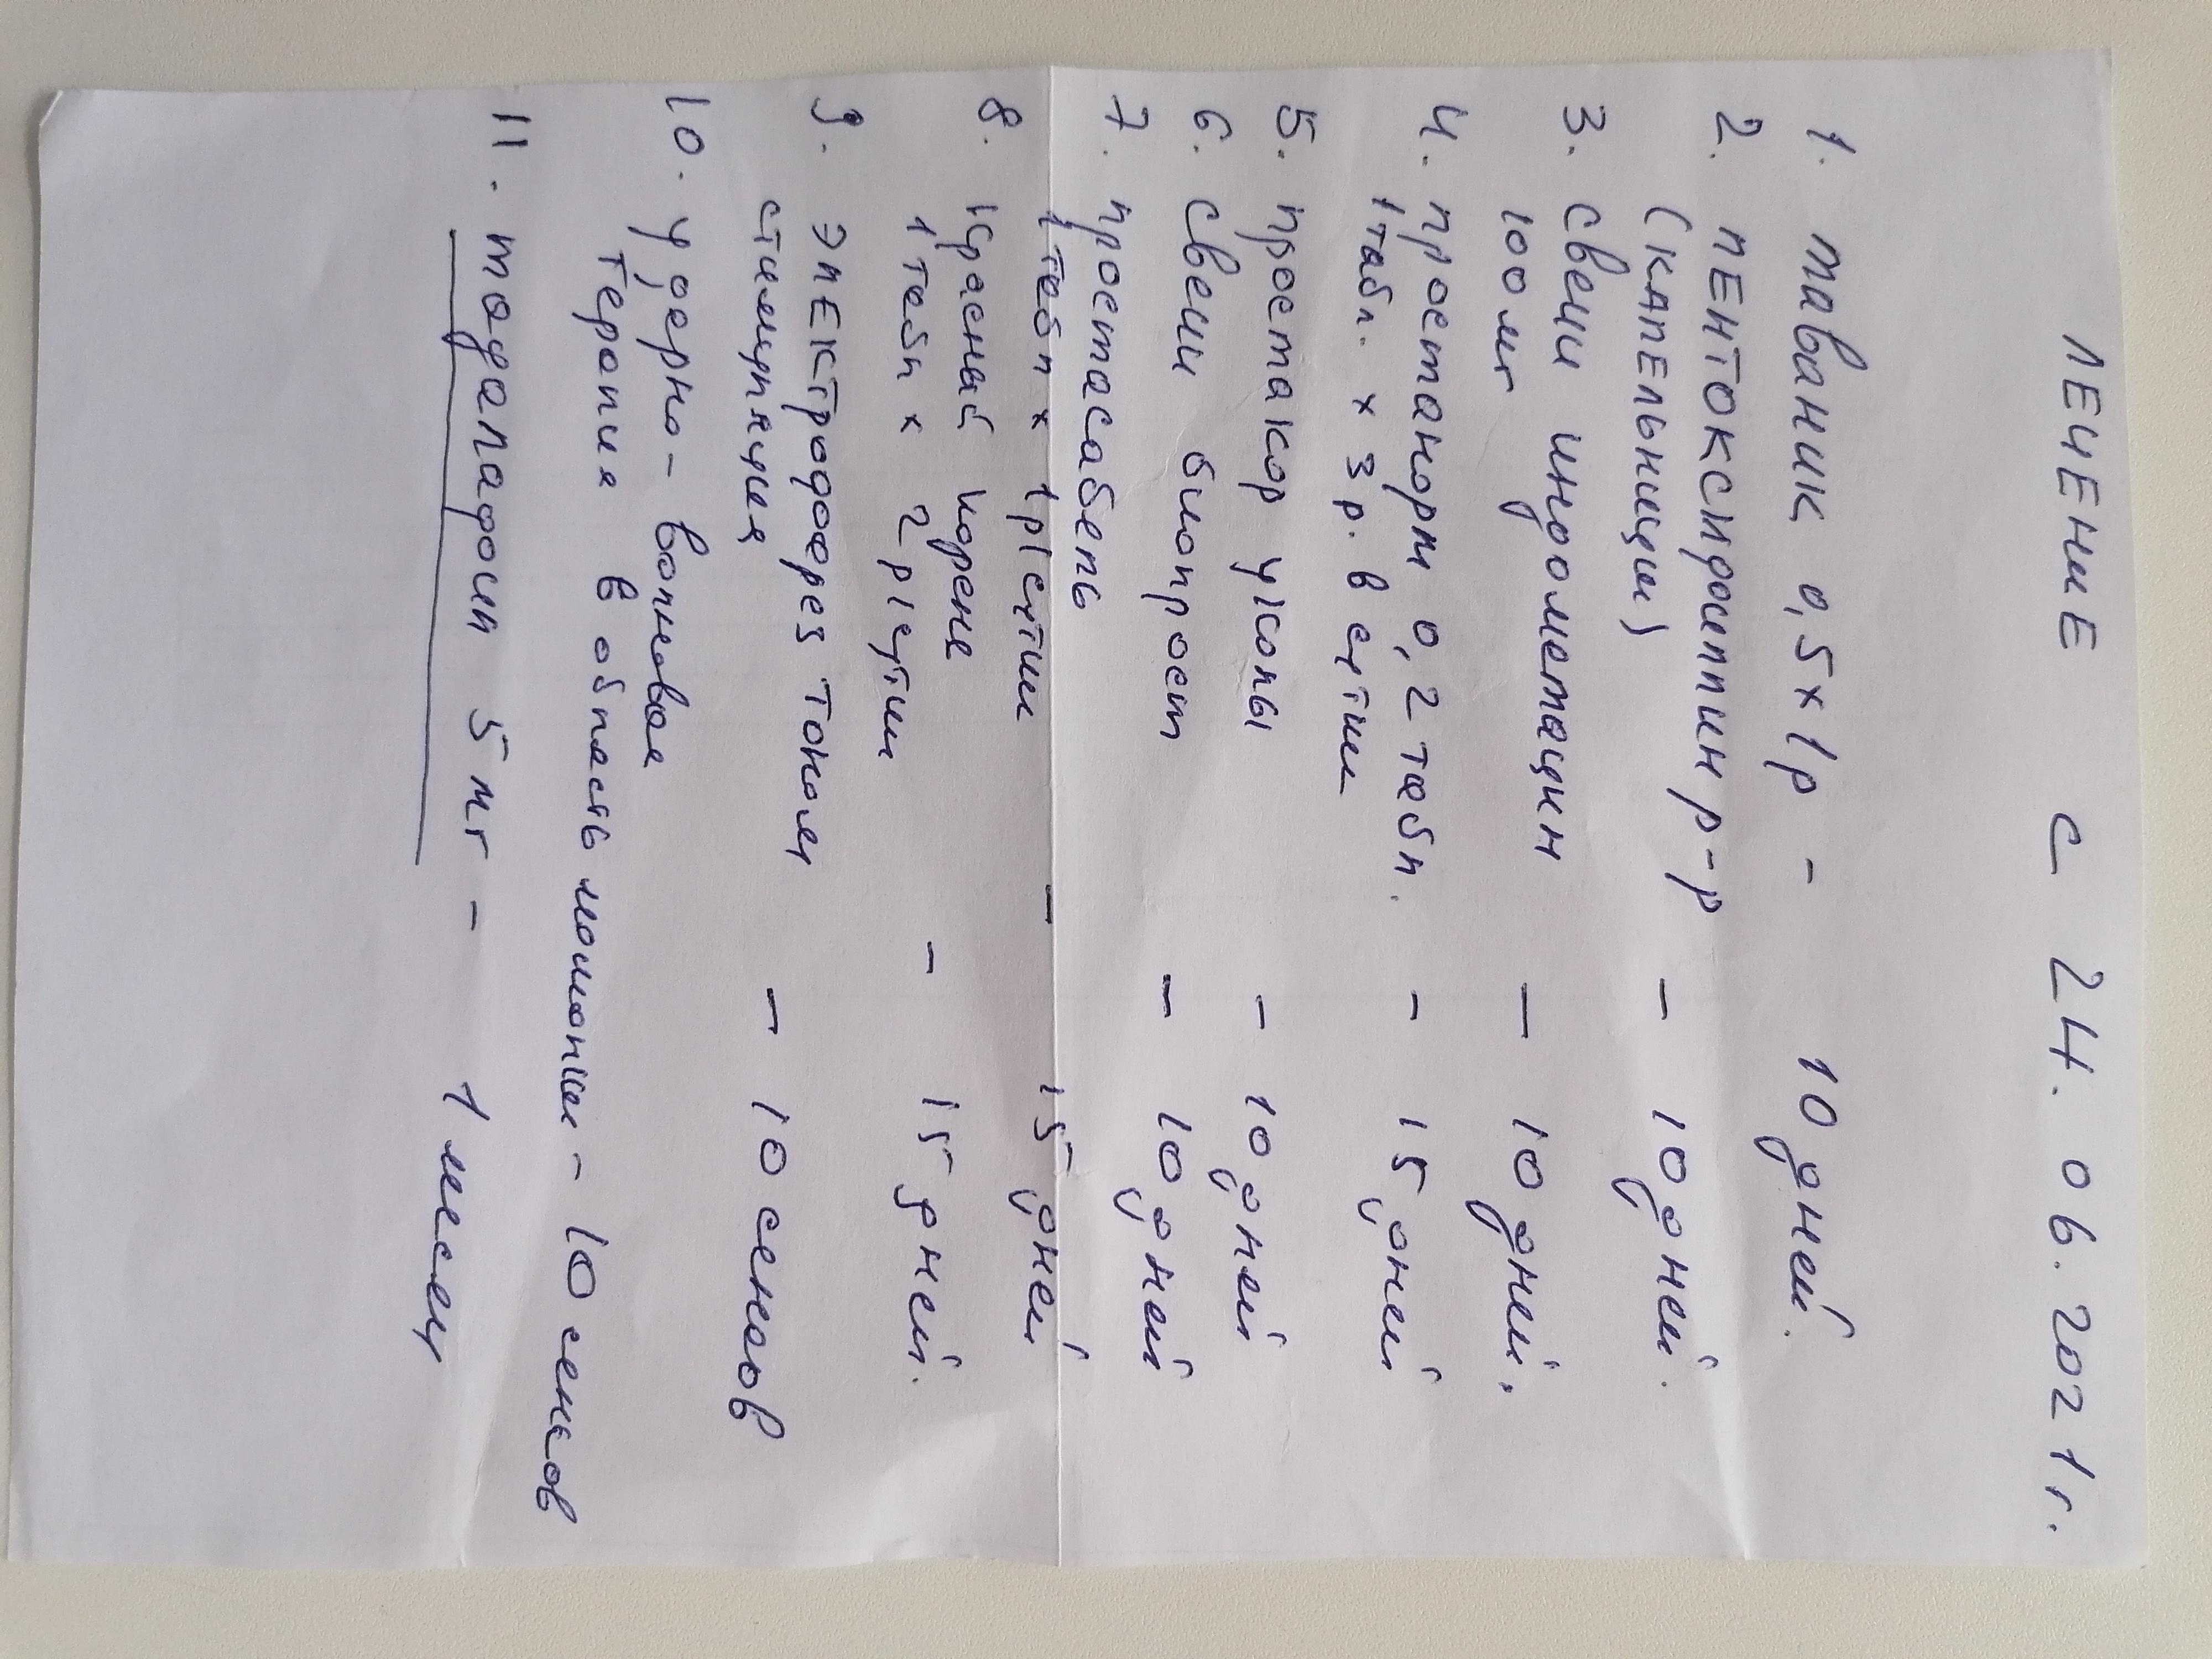 ЛЕЧЕНИЕ с 24.06.2021г.
1. таваник 0,5 x 1р - 10 дней.
2. ПЕНТОКСИФИЛЛИН р-р
(КАПЕЛЬНИЦЫ) - 10 дней.
3. свечи индометацин
100 мг - 10 дней.
4. простанорм 0,2 табл.
1 табл. x 3 р. в сутки - 15 дней
5. простакор уколы - 10 дней
6. свечи биопрост - 10 дней
7. простасабель
1 табл x 1 р/сутки - 15 дней
8. Красный корень
1 табл x 2 р/сутки - 15 дней.
9. ЭЛЕКТРОФОРЕЗ ТОКОМ
стимуляция - 10 сеансов
10. Ударно-волновая
терапия в область мошонки - 10 сеансов
11. тадалафил 5 мг - 1 месяц